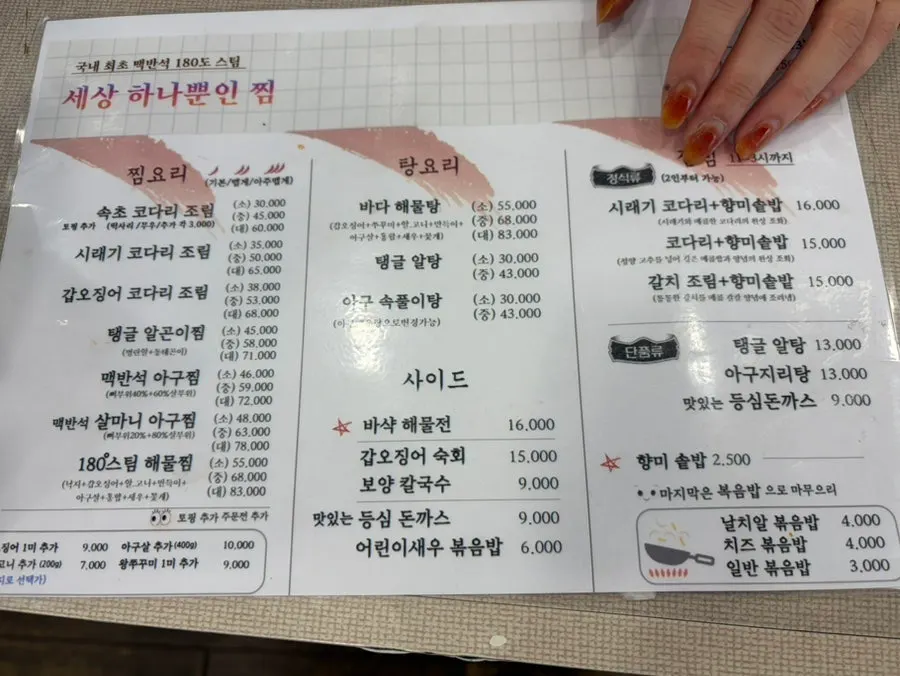 국내 최초 맥반석 180도 스팀
세상 하나뿐인 찜
찜요리
(기본/맵게/아주맵게)
속초 코다리 조림 (소) 30,000
토핑 추가 (떡사리/무우/추가 각 3,000) (중) 45,000
(대) 60,000
시래기 코다리 조림 (소) 35,000
(중) 50,000
(대) 65,000
갑오징어 코다리 조림 (소) 38,000
(중) 53,000
(대) 68,000
탱글 알곤이찜 (소) 45,000
(명란알+동태곤이) (중) 58,000
(대) 71,000
맥반석 아구찜 (소) 46,000
(뼈부위40%+60%살부위) (중) 59,000
(대) 72,000
맥반석 살마니 아구찜 (소) 48,000
(뼈부위20%+80%살부위) (중) 63,000
(대) 78,000
180°스팀 해물찜 (소) 55,000
(낙지+갑오징어+알,고니+만득이+ (중) 68,000
아구살+홍합+새우+꽃게) (대) 83,000
토핑 추가 주문전 추가
징어 1미 추가 9,000 아구살 추가 (400g) 10,000
고니 추가 (200g) 7,000 왕쭈꾸미 1미 추가 9,000
로 선택가)
탕요리
바다 해물탕 (소) 55,000
(갑오징어+쭈꾸미+알,고니+만득이+ (중) 68,000
아구살+홍합+새우+꽃게) (대) 83,000
탱글 알탕 (소) 30,000
(중) 43,000
아구 속풀이탕 (소) 30,000
(중) 43,000
사이드
바샥 해물전 16,000
갑오징어 숙회 15,000
보양 칼국수 9,000
맛있는 등심 돈까스 9,000
어린이새우 볶음밥 6,000
3시까지
정식류 (2인부터 가능)
시래기 코다리+향미솥밥 16,000
(시래기와 매콤한 코다리의 환상 조화)
코다리+향미솥밥 15,000
(청양 고추를 넣어 깊은 매콤함과 양념의 환상 조화)
갈치 조림+향미솥밥 15,000
단품류
탱글 알탕 13,000
아구지리탕 13,000
맛있는 등심돈까스 9,000
향미 솥밥 2,500
마지막은 볶음밥 으로 마무으리
날치알 볶음밥 4,000
치즈 볶음밥 4,000
일반 볶음밥 3,000